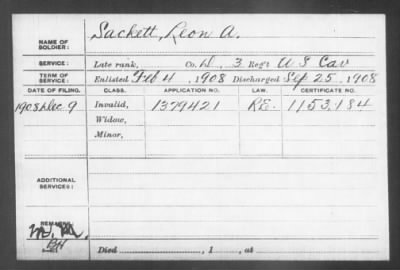 NAME OF SOLDIER: Sackett, Leon A.
SERVICE: Late rank, Co. D, 3 Reg't U S Cav
TERM OF SERVICE: Enlisted Feb 4, 1908 Discharged Sep 25, 1908
DATE OF FILING. CLASS. APPLICATION NO. LAW. CERTIFICATE NO.
1908 Dec 9 Invalid, 1379421 R.E. 1153,184
Widow,
Minor,
ADDITIONAL SERVICES:
REMARKS:
Died , 1 , at